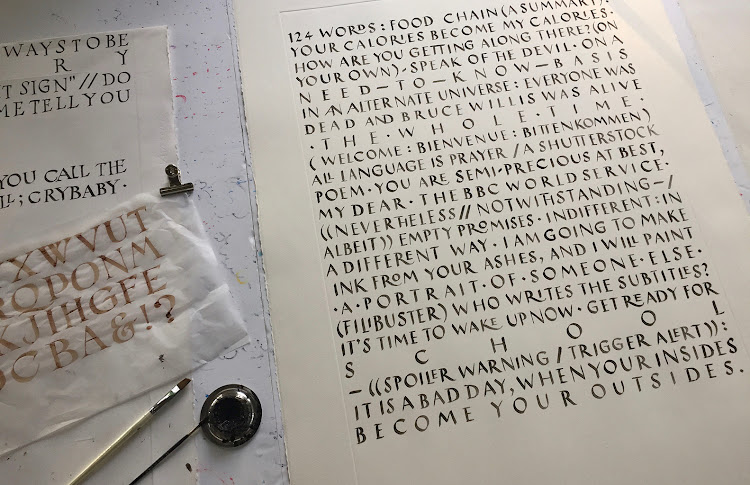 WAYS TO BE
R Y
T SIGN" // DO
ME TELL YOU
YOU CALL THE
LL; CRYBABY·
XWVUT
RQPONM
KJIHGFE
DCBA&!?
124 WORDS: FOOD CHAIN (A SUMMARY).
YOUR CALORIES BECOME MY CALORIES.
HOW ARE YOU GETTING ALONG THERE? (ON
YOUR OWN). SPEAK OF THE DEVIL · ON A
NEED–TO–KNOW–BASIS
IN AN ALTERNATE UNIVERSE: EVERYONE WAS
DEAD AND BRUCE WILLIS WAS ALIVE
· THE WHOLE TIME ·
(WELCOME: BIENVENUE: BITTENKOMMEN)
ALL LANGUAGE IS PRAYER / A SHUTTERSTOCK
POEM · YOU ARE SEMI-PRECIOUS AT BEST,
MY DEAR · THE BBC WORLD SERVICE ·
((NEVERTHELESS // NOTWITHSTANDING – /
ALBEIT)) EMPTY PROMISES · INDIFFERENT: IN
A DIFFERENT WAY · I AM GOING TO MAKE
INK FROM YOUR ASHES, AND I WILL PAINT
· A · PORTRAIT · OF · SOMEONE · ELSE ·
(FILIBUSTER) WHO WRITES THE SUBTITLES?
IT'S TIME TO WAKE UP NOW · GET READY FOR
SCHOOL
– ((SPOILER WARNING / TRIGGER ALERT)):
IT IS A BAD DAY, WHEN YOUR INSIDES
BECOME YOUR OUTSIDES.